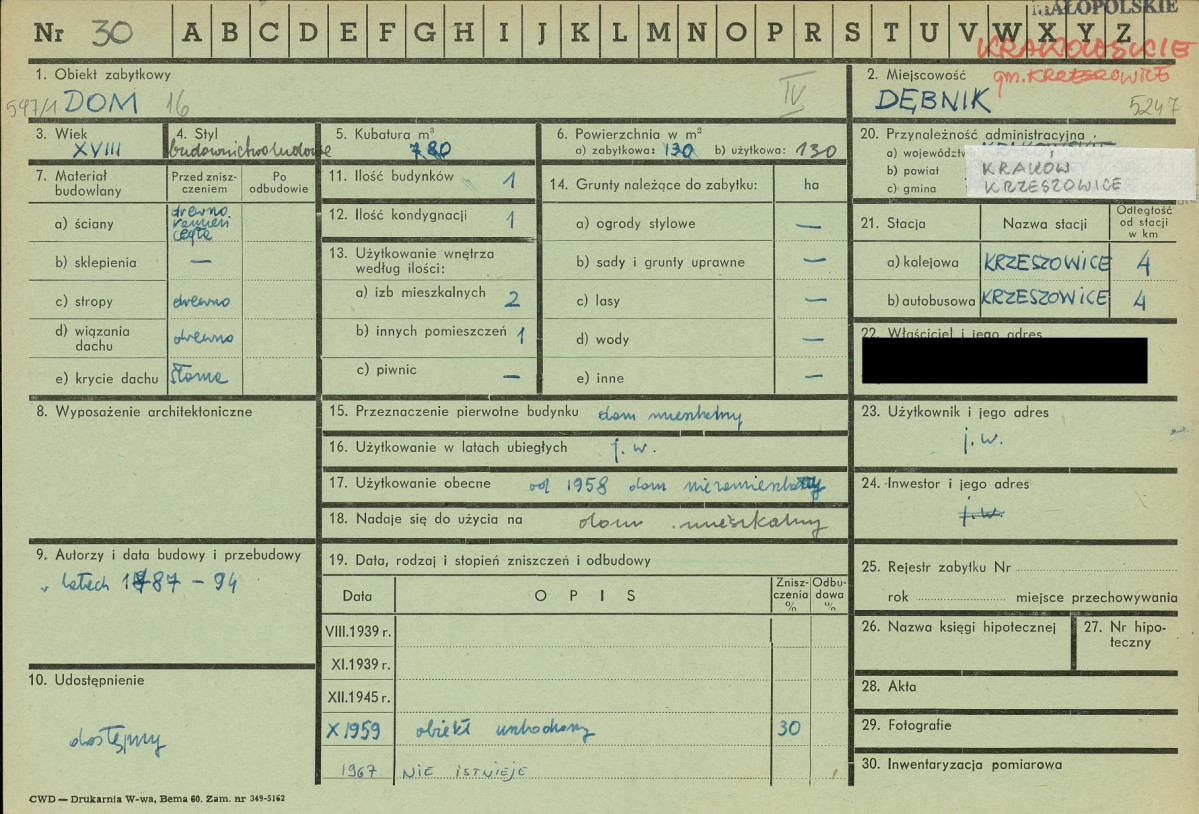 MAŁOPOLSKIE
Nr 30 A B C D E F G H I J K L M N O P R S T U V W X Y Z
KRAKOWSKIE
gm. KRZESZOWICE
1. Obiekt zabytkowy
597/1 DOM 16 IV
2. Miejscowość
DĘBNIK 5247
3. Wiek
XVIII
4. Styl
budownictwo ludowe
5. Kubatura m³
780
6. Powierzchnia w m²
a) zabytkowa: 130 b) użytkowa: 130
7. Materiał budowlany
Przed zniszczeniem
Po odbudowie
a) ściany drewno kamień cegła
b) sklepienia —
c) stropy drewno
d) wiązania dachu drewno
e) krycie dachu słoma
8. Wyposażenie architektoniczne
9. Autorzy i data budowy i przebudowy
w latach 1787 - 94
10. Udostępnienie
dostępny
11. Ilość budynków 1
12. Ilość kondygnacji 1
13. Użytkowanie wnętrza według ilości:
a) izb mieszkalnych 2
b) innych pomieszczeń 1
c) piwnic —
14. Grunty należące do zabytku: ha
a) ogrody stylowe —
b) sady i grunty uprawne —
c) lasy —
d) wody —
e) inne —
15. Przeznaczenie pierwotne budynku dom mieszkalny
16. Użytkowanie w latach ubiegłych j. w.
17. Użytkowanie obecne od 1958 dom niezamieszkały
18. Nadaje się do użycia na dom mieszkalny
19. Data, rodzaj i stopień zniszczeń i odbudowy
Data OPIS Zniszczenia % Odbudowa %
VIII.1939 r.
XI.1939 r.
XII.1945 r.
X 1959 obiekt uszkodzony 30
1967 NIE ISTNIEJE
20. Przynależność administracyjna
a) województw
b) powiat KRAKÓW
c) gmina KRZESZOWICE
21. Stacja Nazwa stacji Odległość od stacji w km
a) kolejowa KRZESZOWICE 4
b) autobusowa KRZESZOWICE 4
22. Właściciel i jego adres
23. Użytkownik i jego adres
j. w.
24. Inwestor i jego adres
j. w.
25. Rejestr zabytku Nr
rok miejsce przechowywania
26. Nazwa księgi hipotecznej
27. Nr hipoteczny
28. Akta
29. Fotografie
30. Inwentaryzacja pomiarowa
CWD — Drukarnia W-wa, Bema 60. Zam. nr 349-5162